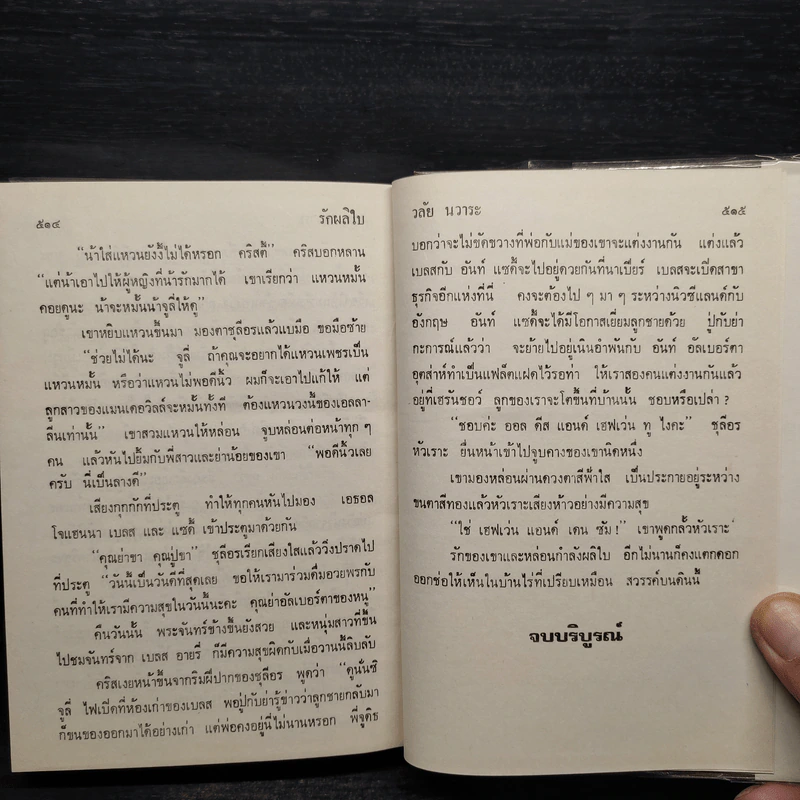 ๕๑๔
รักผลิใบ
“น้าใส่แหวนยังงี้ไม่ได้หรอก คริสตี้” คริสบอกหลาน
“แต่น้าเอาไปให้ผู้หญิงที่น้ารักมากได้ เขาเรียกว่า แหวนหมั้น
คอยดูนะ น้าจะหมั้นน้าจูลี่ให้ดู”
เขาหยิบแหวนขึ้นมา มองตาชุลีอรแล้วแบมือ ขอมือซ้าย
“ช่วยไม่ได้นะ จูลี่ ถ้าคุณจะอยากได้แหวนเพชรเป็น
แหวนหมั้น หรือว่าแหวนไม่พอดีนิ้ว ผมก็จะเอาไปแก้ให้ แต่
ลูกสาวของแมนเดอวิลล์จะหมั้นทั้งที ต้องแหวนวงนี้ของเอลลา-
ลีนเท่านั้น” เขาสวมแหวนให้หล่อน จูบหล่อนต่อหน้าทุก ๆ
คน แล้วหันไปยิ้มกับพี่สาวและย่าน้อยของเขา “พอดีนิ้วเลย
ครับ นี่เป็นลางดี”
เสียงกุกกักที่ประตู ทำให้ทุกคนหันไปมอง เอธอล
โจแฮนนา เบลส และ แซดี้ เข้าประตูมาด้วยกัน
“คุณย่าขา คุณปู่ขา” ชุลีอรเรียกเสียงใสแล้ววิ่งปราดไป
ที่ประตู “วันนี้เป็นวันดีที่สุดเลย ขอให้เรามาร่วมดื่มอวยพรกับ
คนที่ทำให้เรามีความสุขในวันนี้นะคะ คุณย่าอัลเบอร์ตาของหนู”
คืนวันนั้น พระจันทร์ข้างขึ้นยังสวย และหนุ่มสาวที่ขึ้น
ไปชมจันทร์จาก เบลส อายรี่ ก็มีความสุขผิดกับเมื่อวานนี้ลิบลับ
คริสเงยหน้าขึ้นจากริมฝีปากของชุลีอร พูดว่า “ดูนั่นซิ
จูลี่ ไฟเปิดที่ห้องเก่าของเบลส พอปู่กับย่ารู้ข่าวว่าลูกชายกลับมา
ก็ขนของออกมาไว้อย่างเก่า แต่พ่อคงอยู่นี่ไม่นานหรอก พี่จูดิธ
วลัย นวาระ
๕๑๕
บอกว่าจะไม่ขัดขวางที่พ่อกับแม่ของเขาจะแต่งงานกัน แต่งแล้ว
เบลสกับ อันท์ แซดี้จะไปอยู่ด้วยกันที่นาเบียร์ เบลสจะเปิดสาขา
ธุรกิจอีกแห่งที่นี่ คงจะต้องไป ๆ มา ๆ ระหว่างนิวซีแลนด์กับ
อังกฤษ อันท์ แซดี้จะได้มีโอกาสเยี่ยมลูกชายด้วย ปู่กับย่า
กะการณ์แล้วว่า จะย้ายไปอยู่เนินอำพันกับ อันท์ อัลเบอร์ตา
อุตส่าห์ทำเป็นแฟล็ตแฝดไว้รอท่า ให้เราสองคนแต่งงานกันแล้ว
อยู่ที่เฮรันชอว์ ลูกของเราจะโตขึ้นที่บ้านนั้น ชอบหรือเปล่า?
“ชอบค่ะ ออล ดีส แอนด์ เฮฟเว่น ทู ไงคะ” ชุลีอร
หัวเราะ ยื่นหน้าเข้าไปจูบคางของเขานิดหนึ่ง
เขามองหล่อนผ่านดวงตาสีฟ้าใส เป็นประกายอยู่ระหว่าง
ขนตาสีทองแล้วหัวเราะเสียงห้าวอย่างมีความสุข
“ใช่ เฮฟเว่น แอนด์ เดน ซัม!” เขาพูดกลั้วหัวเราะ
รักของเขาและหล่อนกำลังผลิใบ อีกไม่นานก็คงแตกดอก
ออกช่อให้เห็นในบ้านไร่ที่เปรียบเหมือน สวรรค์บนดินนี้
จบบริบูรณ์